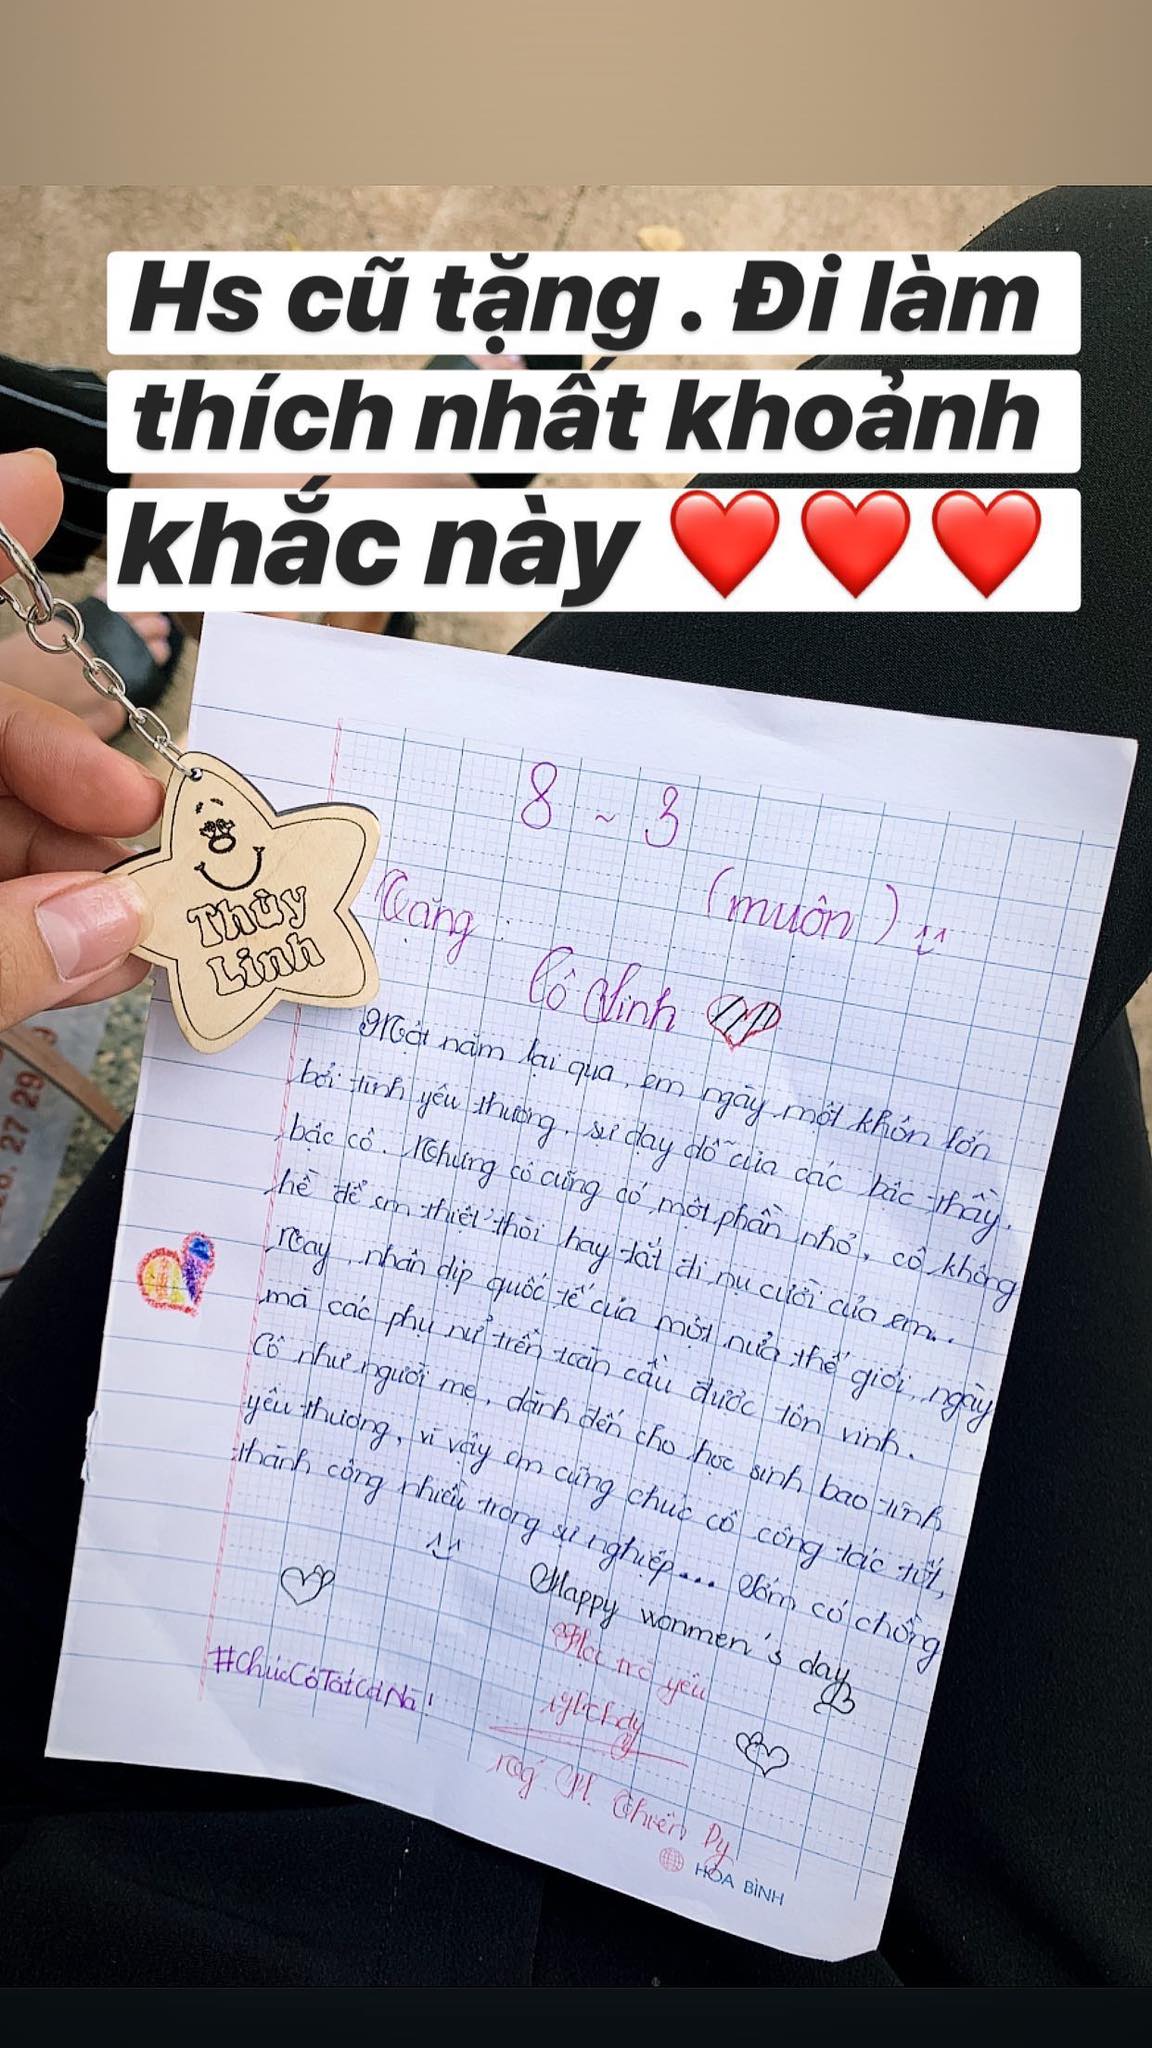 Hs cũ tặng . Đi làm
thích nhất khoảnh
khắc này ❤️❤️❤️
Thùy
Linh
8 ~ 3
Tặng : (muôn) ^^
Cô Linh
Một năm lại qua, em ngày một khôn lớn
bởi tình yêu thương, sự dạy dỗ của các bậc thầy,
bậc cô. Nhưng có cũng có một phần nhỏ, cô không
hề để em thiệt thòi hay tắt đi nụ cười của em...
Nay, nhân dịp quốc tế của một nửa thế giới, ngày
mà các phụ nử trên toàn cầu được tôn vinh.
Cô như người mẹ, dành đến cho học sinh bao tình
yêu thương, vì vậy em cũng chúc cô công tác tốt,
thành công nhiều trong sự nghiệp... Sớm có chồng
Happy wonmen's day
Học trò yêu
#ChúcCôTấtCảNà!
Thiên Dy
HÒA BÌNH
26. 27 29